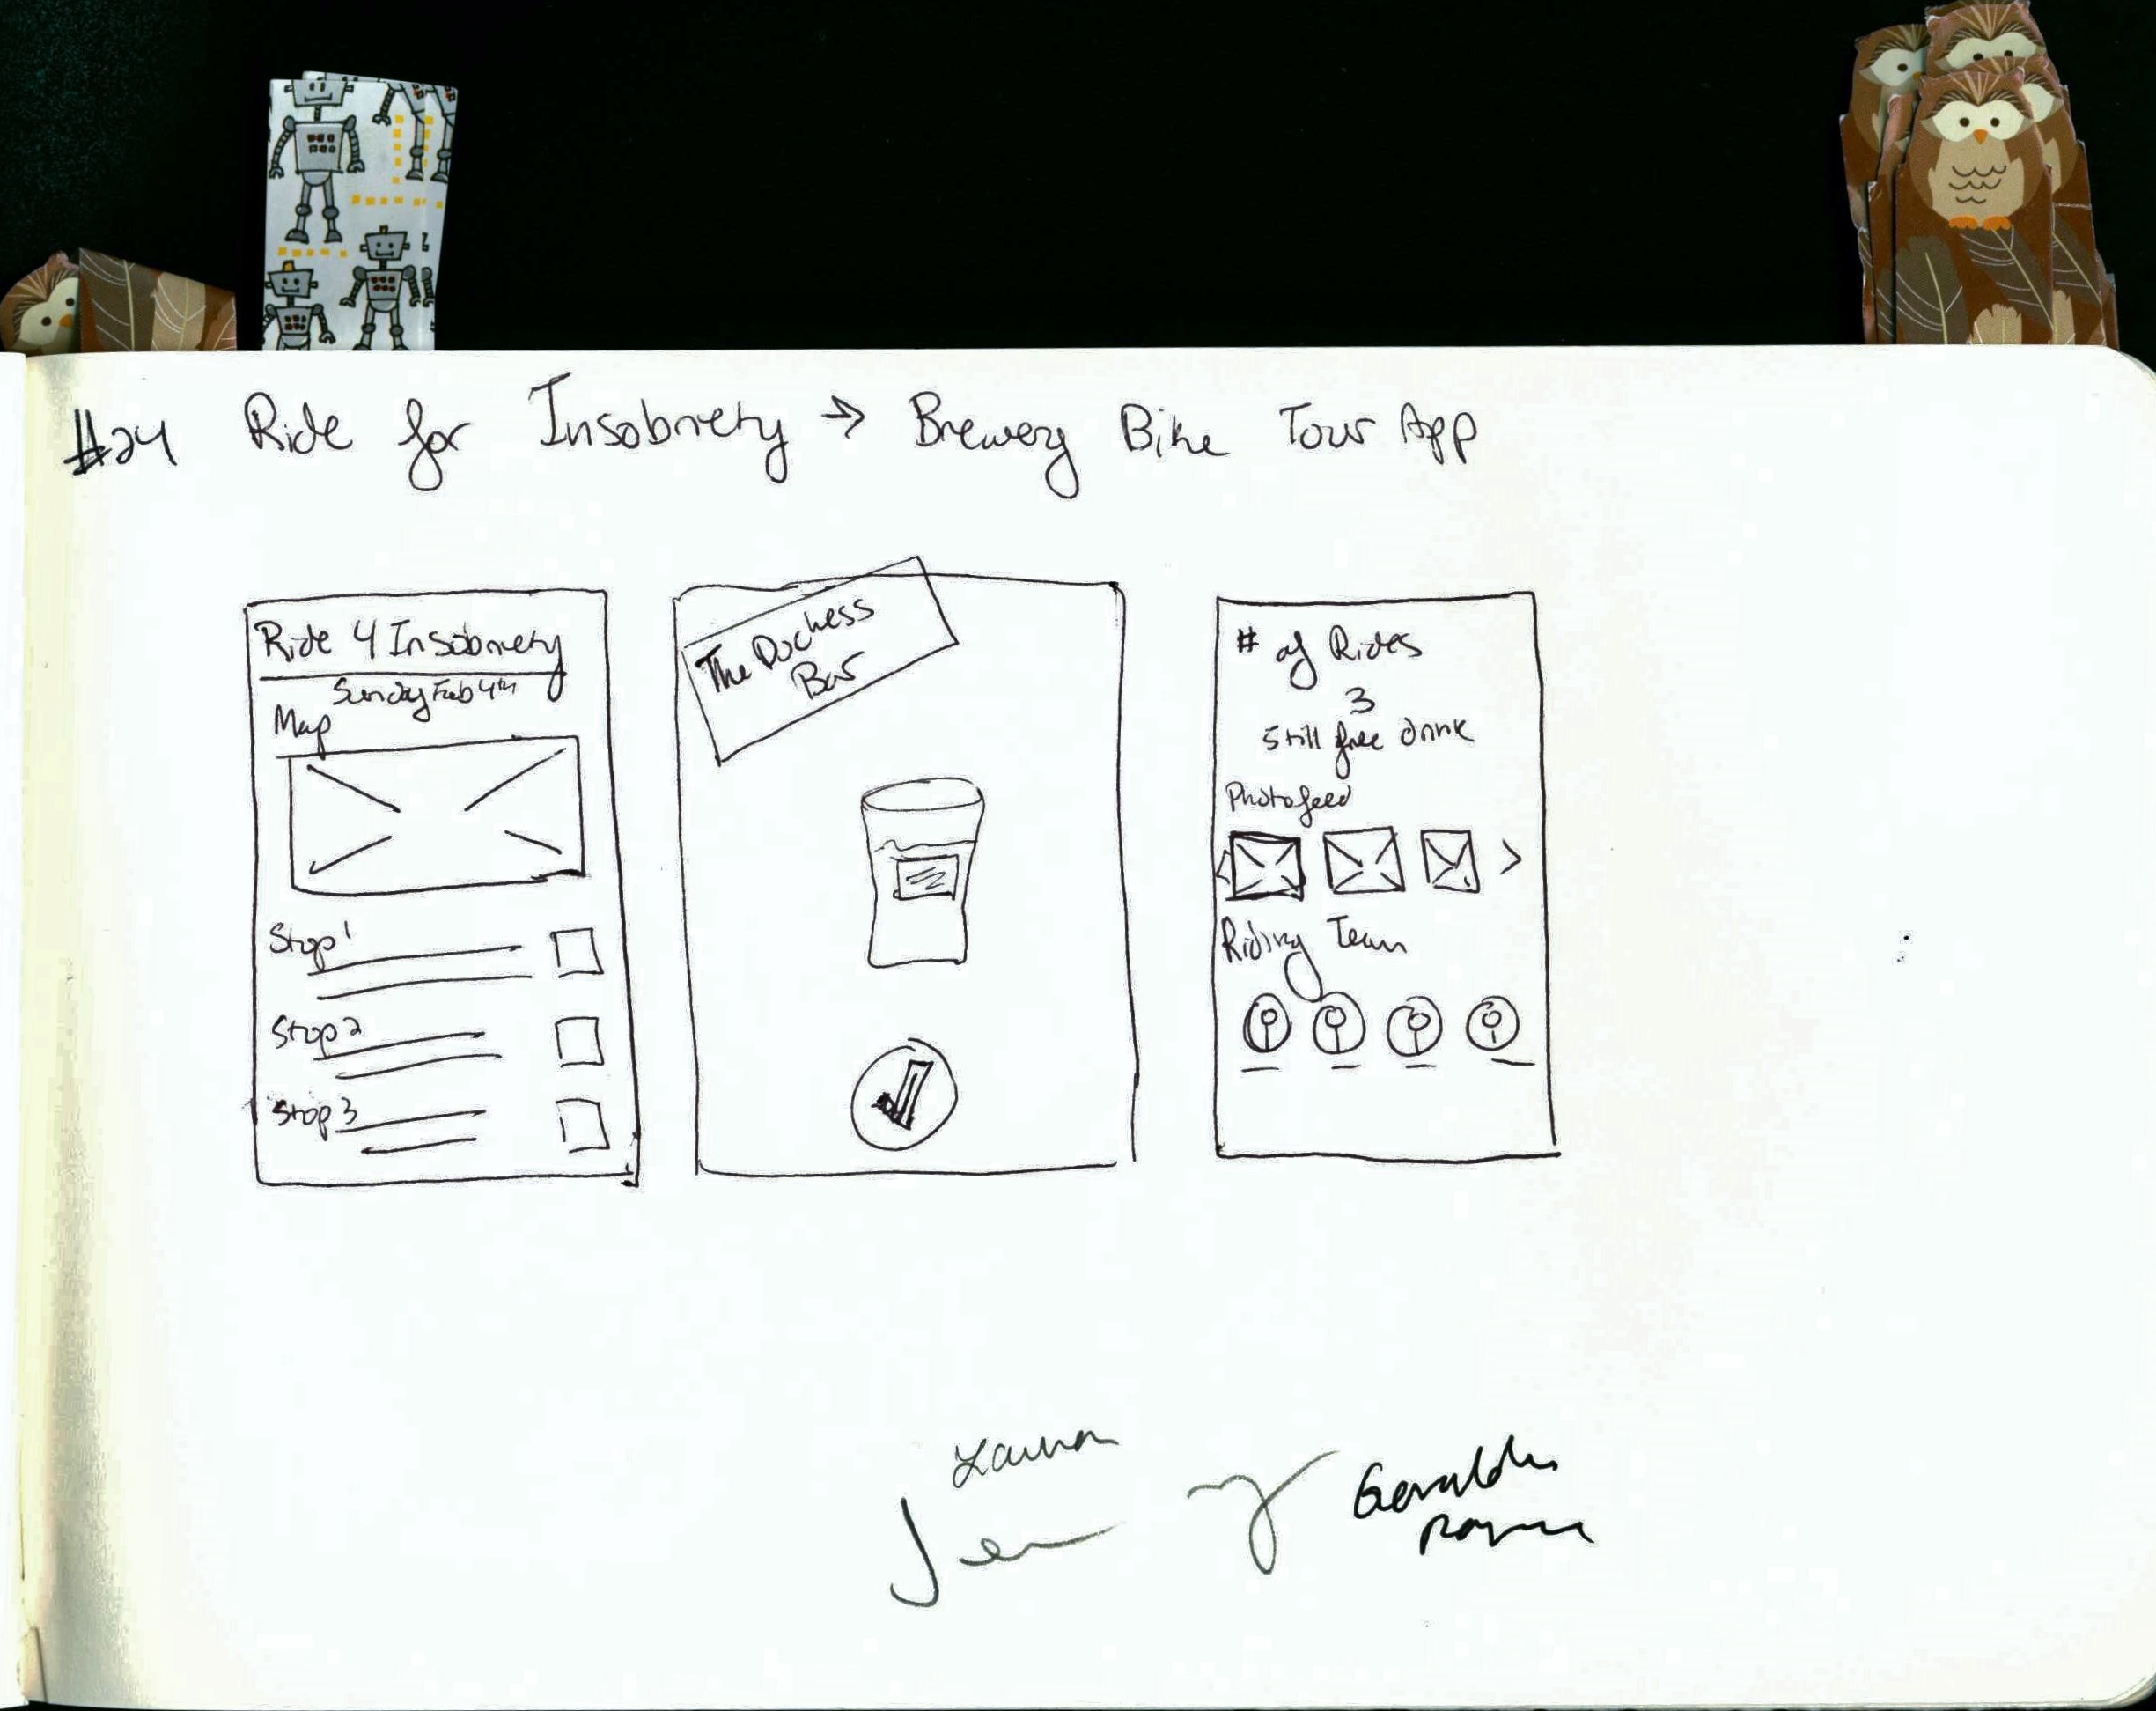 #24 Ride for Insobriety → Brewery Bike Tour App
Ride 4 Insobriety
Sunday Feb 4th
Map
Stop 1
Stop 2
Stop 3
The Duchess
Bar
# of Rides
3
5 till free drink
Photofeed
Riding Team
Laura
Jen